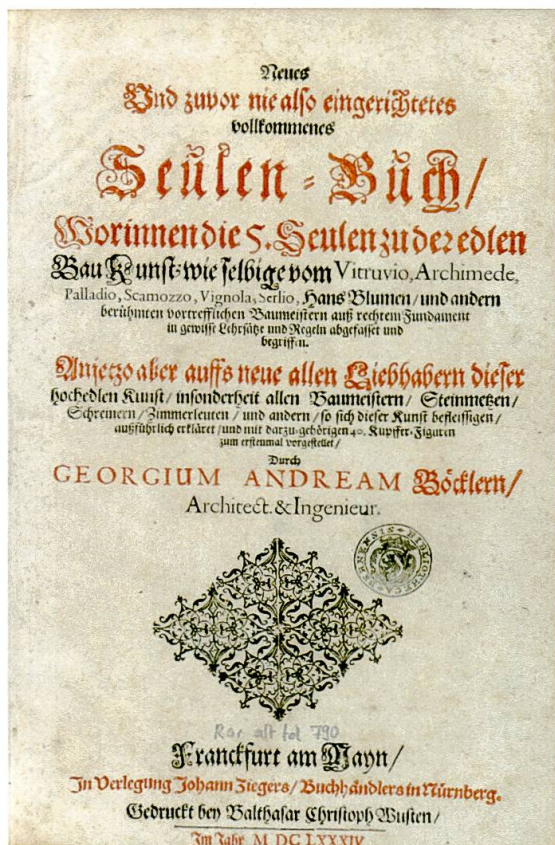 Neues
Und zuvor nie also eingerichtetes
vollkommenes
Seülen-Büch/
Worinnen die 5. Seulen zu der edlen
Bau Kunst-wie selbige vom Vitruvio, Archimede,
Palladio, Scamozzo, Vignola, Serlio, Hans Blumen/ und andern
berühmten vortrefflichen Baumeistern auß rechtem Fundament
in gewisse Lehrsätze und Regeln abgefasset und
begriffen.
Anjetzo aber auffs neue allen Liebhabern dieser
hochedlen Kunst/ insonderheit allen Baumeistern/ Steinmetzen/
Schreinern/ Zimmerleuten/ und andern/ so sich dieser Kunst befleissigen/
außführlich erkläret/ und mit darzu-gehörigen 40. Kupffer-Figuren
zum erstenmal vorgestellet/
Durch
GEORGIUM ANDREAM Böcklern/
Architect. & Ingenieur.
Rar alt fol 790
Franckfurt am Mayn/
In Verlegung Johann Ziegers/ Buchhändlers in Nürnberg.
Gedruckt bey Balthasar Christoph Wusten/
Im Jahr M DC LXXXIV